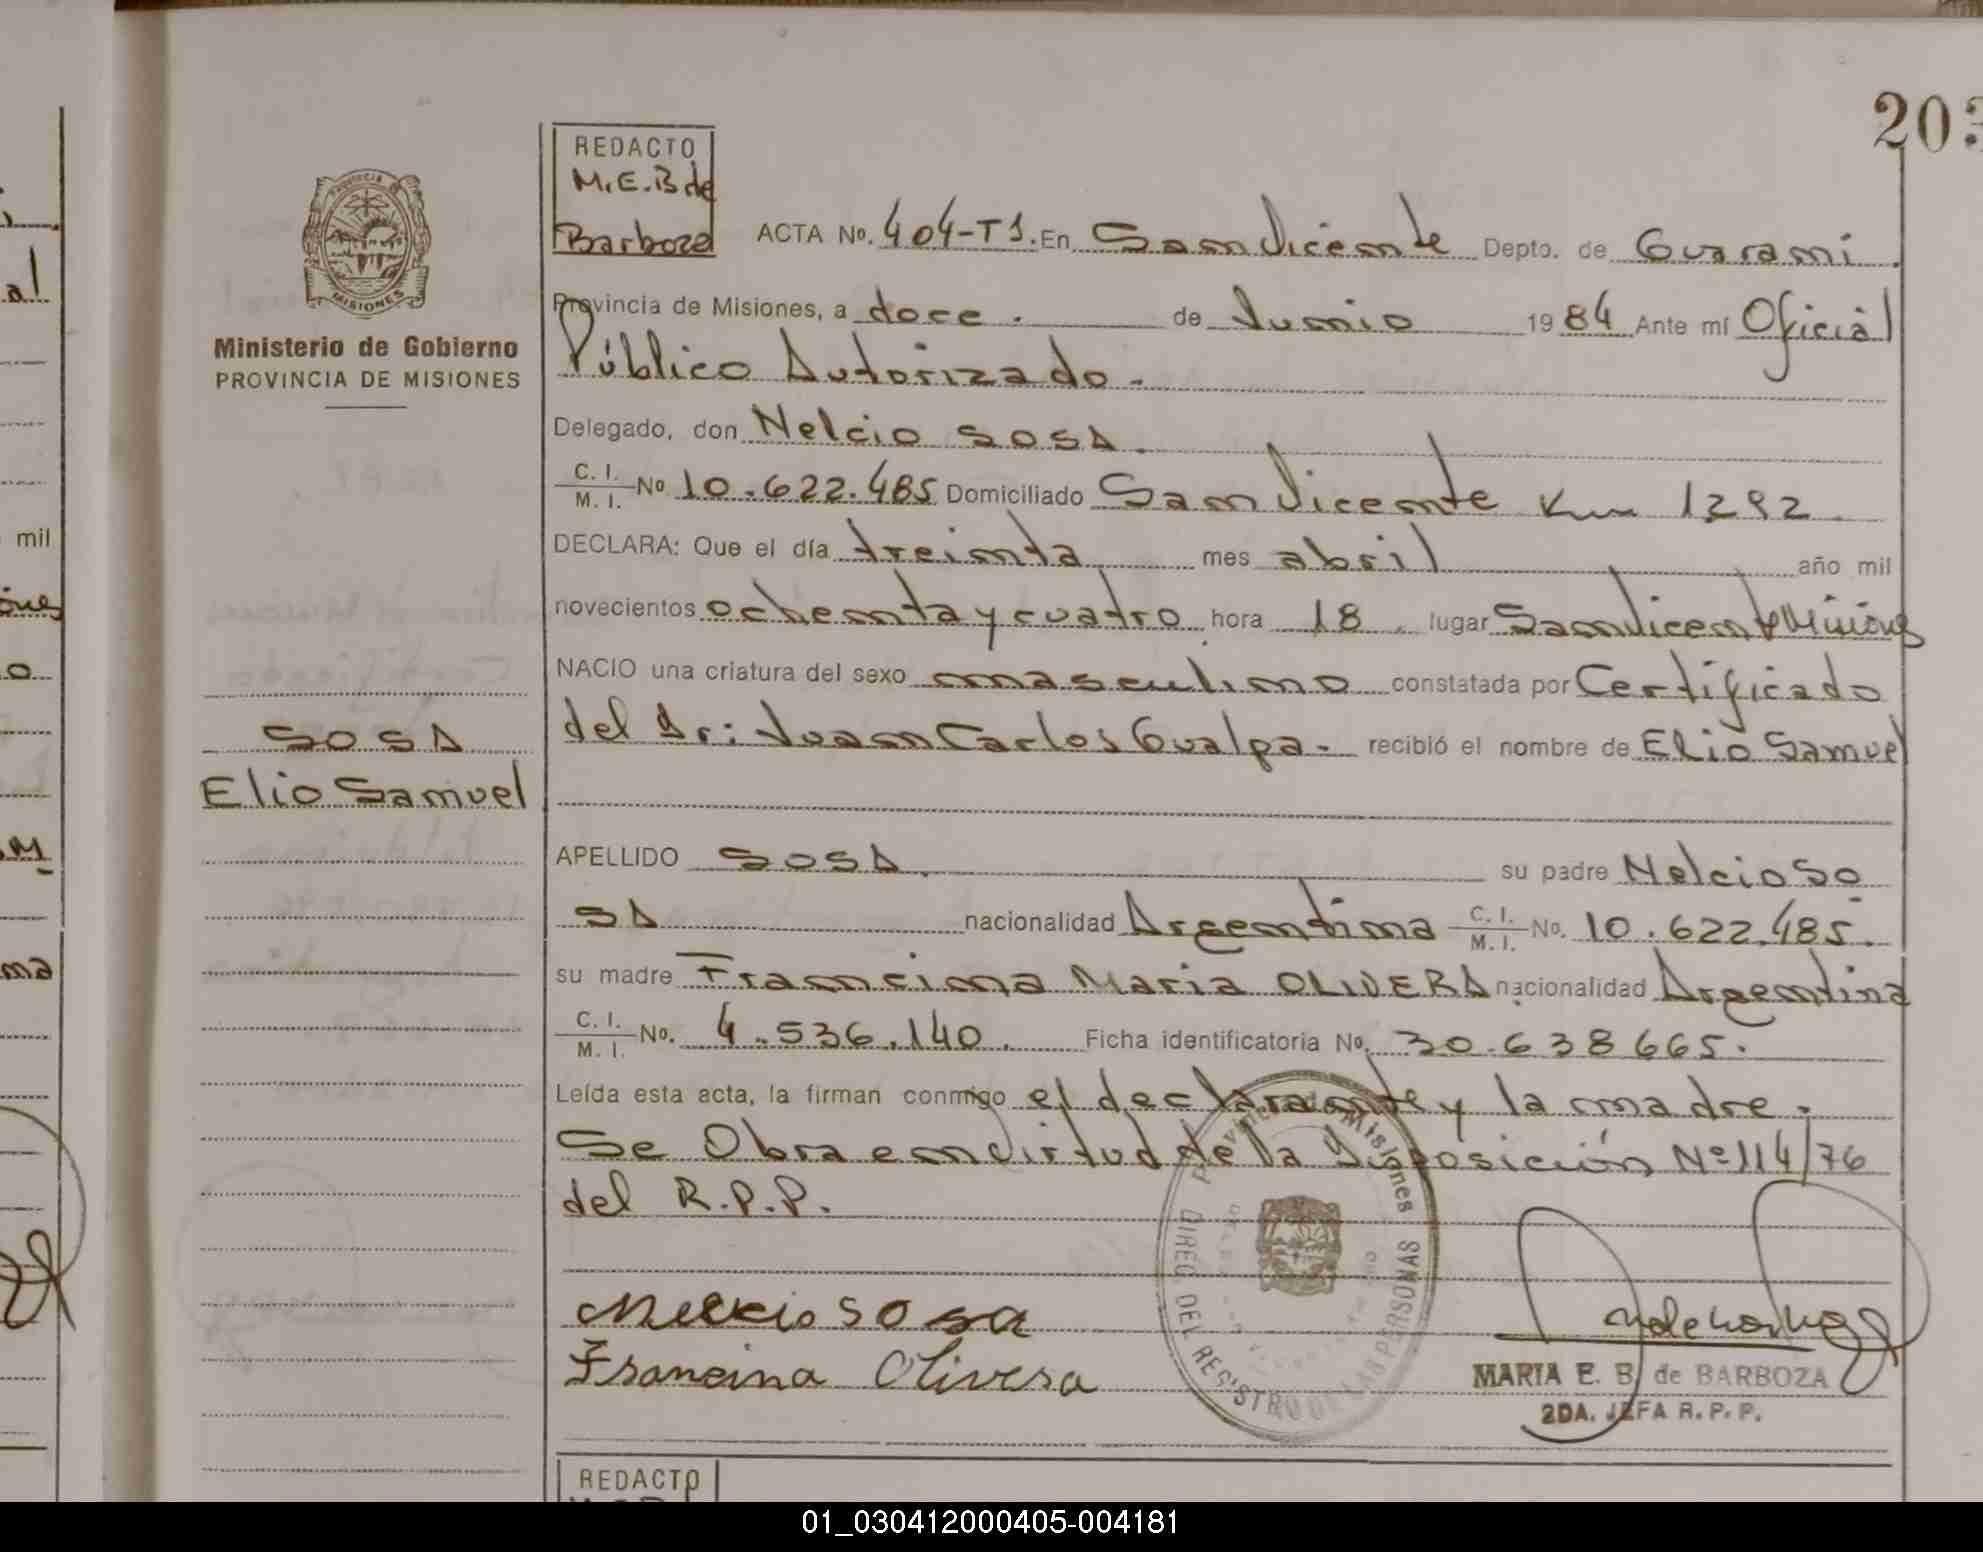 203
REDACTO
M.E.B de
Barboza
ACTA No. 404-T1. En San Vicente Depto. de Guarani.
MISIONES
Ministerio de Gobierno
PROVINCIA DE MISIONES
Provincia de Misiones, a doce. de Junio 19 84 Ante mí Oficial
Público Autorizado.
Delegado, don Nelcio SOSA.
C. I. / M. I. No 10.622.485 Domiciliado San Vicente Km 1292
DECLARA: Que el día treinta mes abril año mil
novecientos ochenta y cuatro hora 18. lugar San Vicente Misiones
NACIO una criatura del sexo masculino constatada por Certificado
del Dr: Juan Carlos Gualpa. recibió el nombre de Elio Samuel
SOSA
Elio Samuel
APELLIDO SOSA su padre Nelcio SO
SA nacionalidad Argentina C. I. / M. I. No. 10.622.485.
su madre Francina Maria OLIVERA nacionalidad Argentina
C. I. / M. I. No. 4.536.140. Ficha identificatoria No. 30.638665.
Leída esta acta, la firman conmigo el declarante y la madre.
Se Obra en virtud de la Disposición Nº 114/76
del R.P.P.
Provincia de Misiones
DIREC. DEL REGISTRO DE LAS PERSONAS
Nelcio sosa
Francina Olivera
MARIA E. B. de BARBOZA
2DA. JEFA R. P. P.
REDACTO
al
mil
ones
o
M
ma
01_030412000405-004181